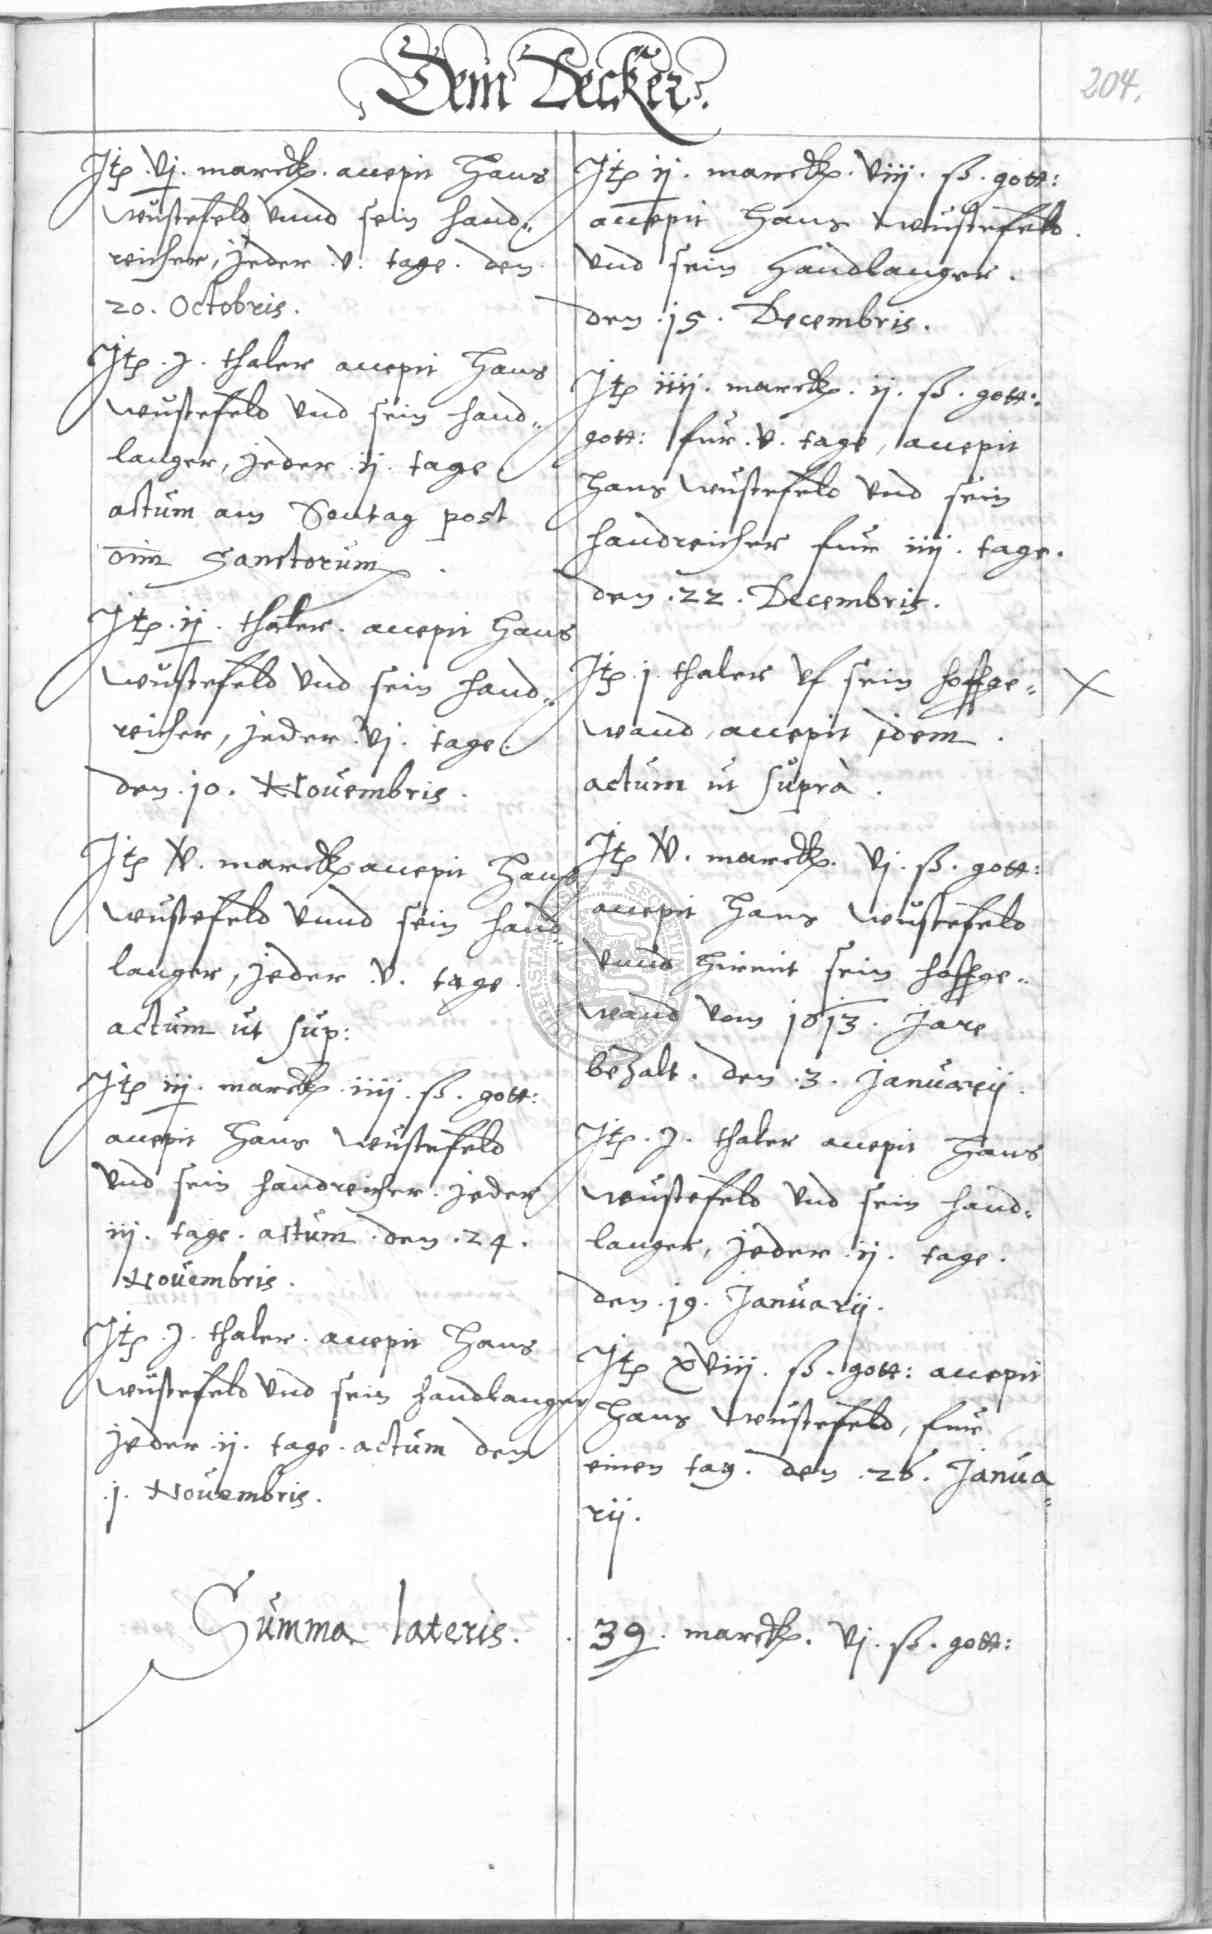 Dem Decker.
204.
Itp. vj. marck. accepit Hans
Wüstefeld vnnd sein hand„
reicher, jeder .v. tage. den
20. Octobris.
Itp. J. thaler accepit Hans
Wüstefeld vnd sein hand„
langer, jeder .ij. tage
actum am Sontag post
oim Sanctorum.
Itp. ij. thaler. accepit Hans
Wüstefeld vnd sein hand„
reicher, jeder .vj. tage.
den .10. Nouembris.
Itp. marck accepit Hans
Wüstefeld vnnd sein hand„
langer, jeder .v. tage.
actum ut sup:
Itp iij. marck .iiij. ß. gott:
accepit Hans Wüstefeld
vnd sein handreicher. jeder
iij. tage. actum .den .24.
Nouembris.
Itp. J. thaler. accepit Hans
Wüstefeld vnd sein handlanger
jeder .ij. tage. actum den
.j. Nouembris.
Itp ij. marck. viij. ß. gott:
accepit Hans Wüstefeld.
vnd sein Handlanger.
den .15. Decembris.
Itp iiij. marck. ij. ß. gott:
gott: für .v. tage, accepit
Hans Wüstefeld vnd sein
handreicher für iiij. tage.
den .22. Decembris.
Itp. j. thaler vf sein hoffge„
wand, accepit idem.
actum ut suprà.
Itp marck. vj. ß. gott:
accepit Hans Wüstefeld
vnnd hiemit sein hoffge„
wand vom 1613. Jare
bezalt. den .3. Januarij.
Itp. J. thaler accepit Hans
Wüstefeld vnd sein hand„
langer, jeder .ij. tage.
den .19. Januarij.
Itp xviij. ß. gott: accepit
Hans Wüstefeld, für
einen tag. den .26. Janua„
rij.
Summa lateris. . 39. marck. vj. ß. gott: